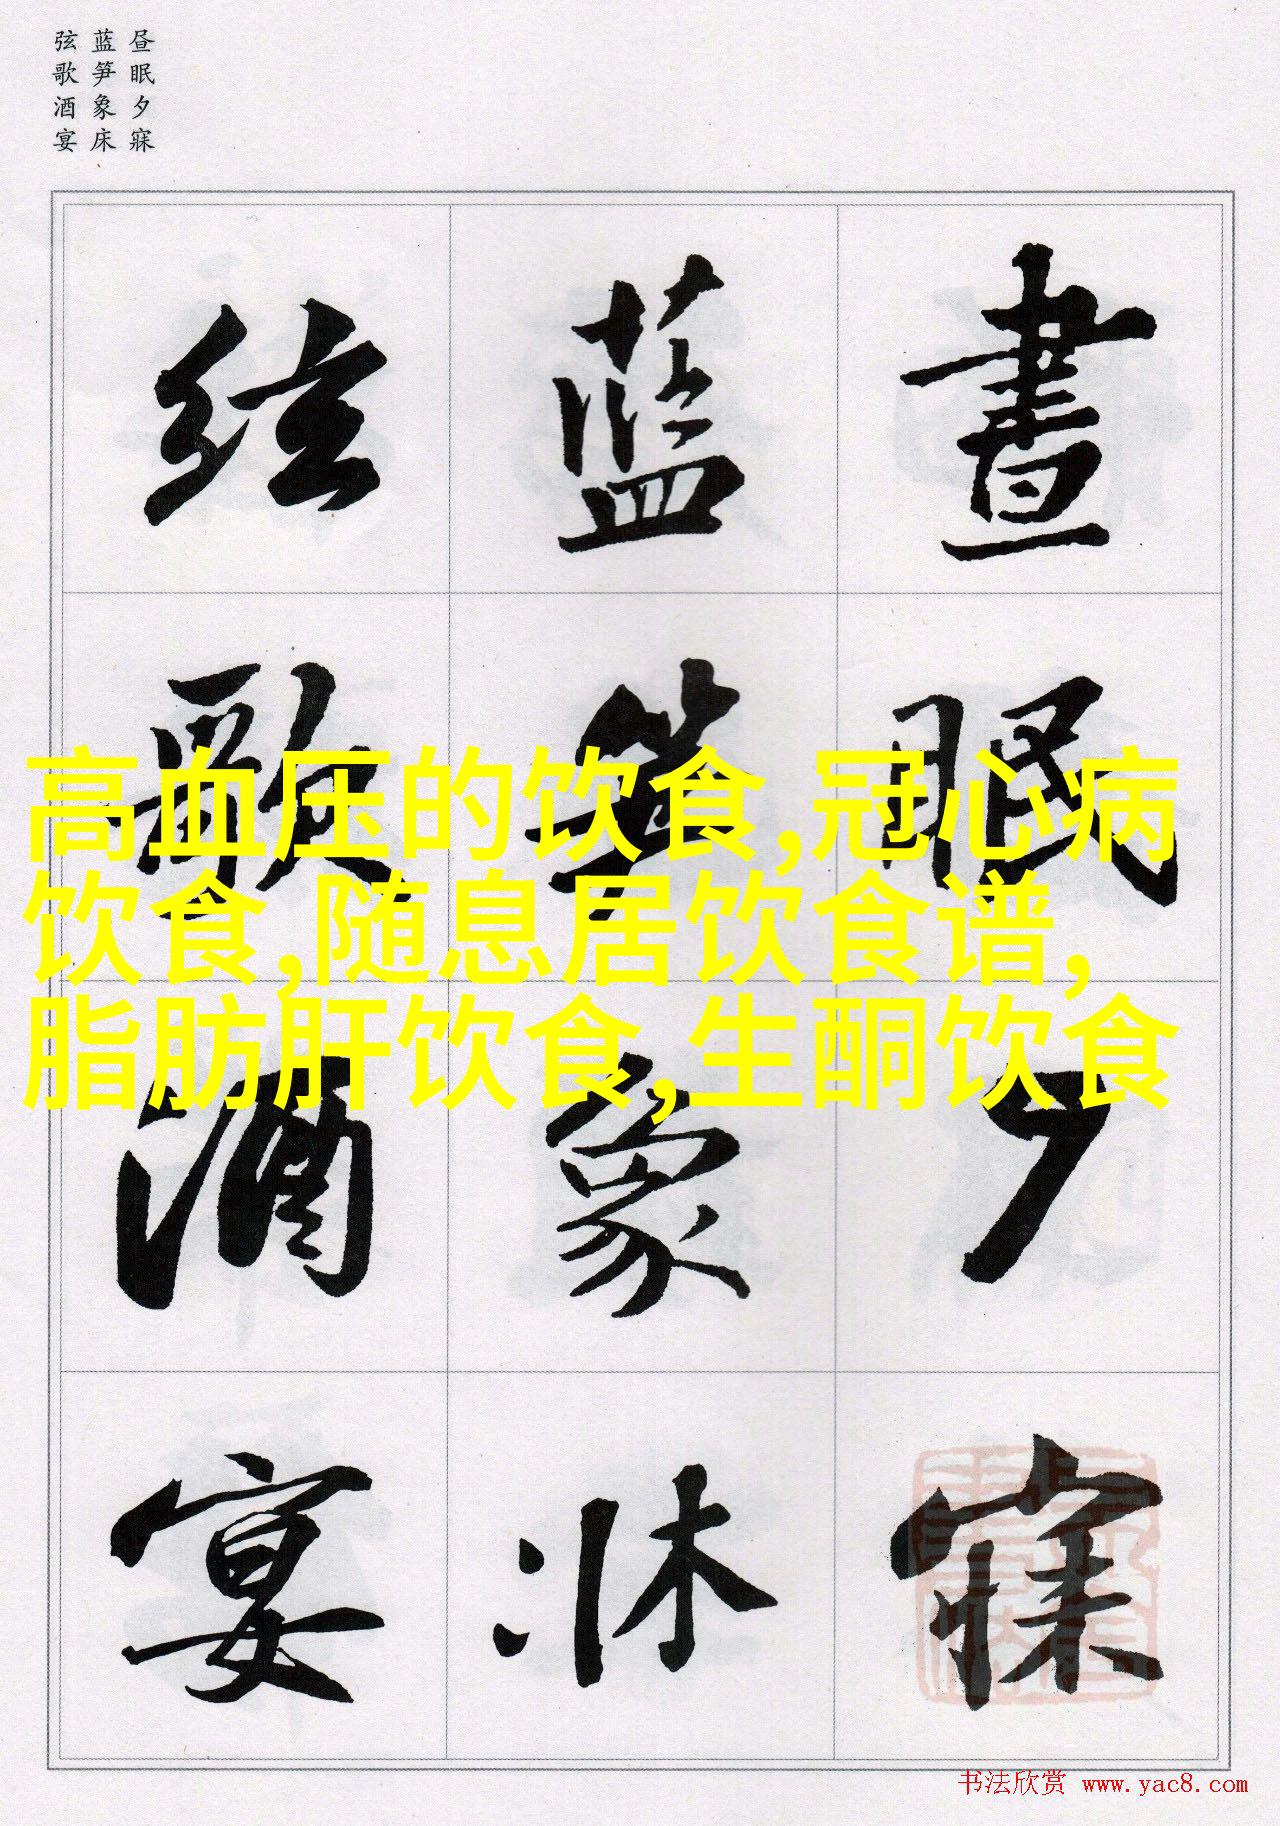 昼眠夕寐
蓝笋象床
弦歌酒宴
晝眠夕寐
藍笋象牀
絃歌酒宴
高血压的饮食,冠心病
饮食,随息居饮食谱,
脂肪肝饮食,生酮饮食
书法欣赏 www.yac8.com